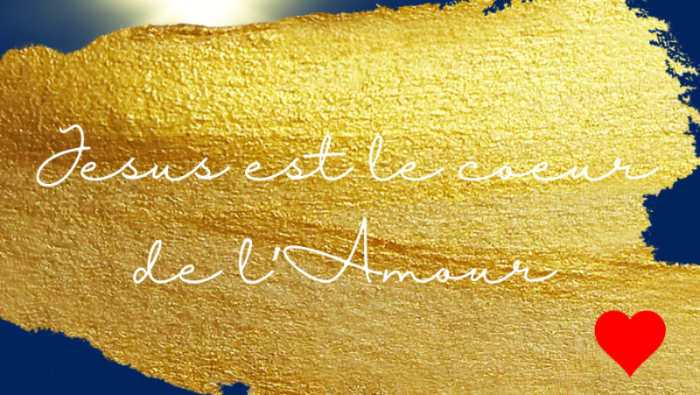 Jesus est le coeur
de l'Amour